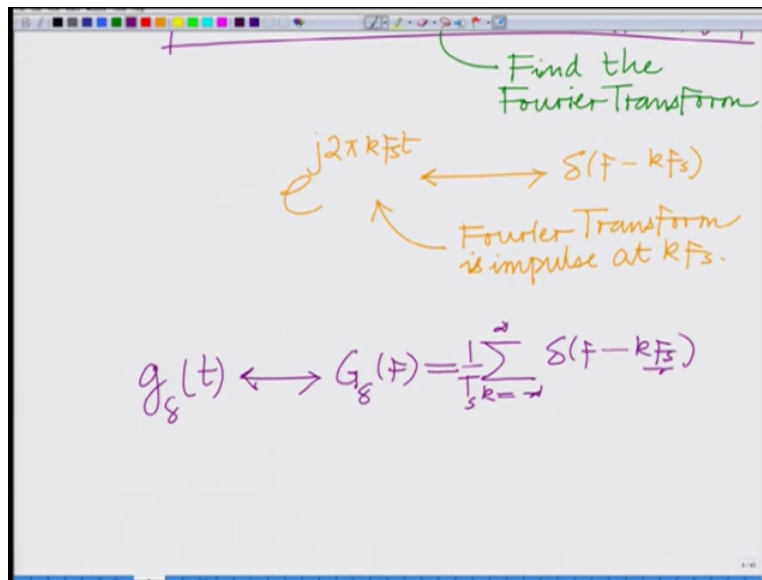 Find the
Fourier Transform
e^{j2πkF_s t} ⟷ δ(F − kF_s)
Fourier Transform
is impulse at kF_s.
g_δ(t) ⟷ G_δ(F) = \frac{1}{T_s} \sum_{k=-∞}^{∞} δ(F − kF_s)